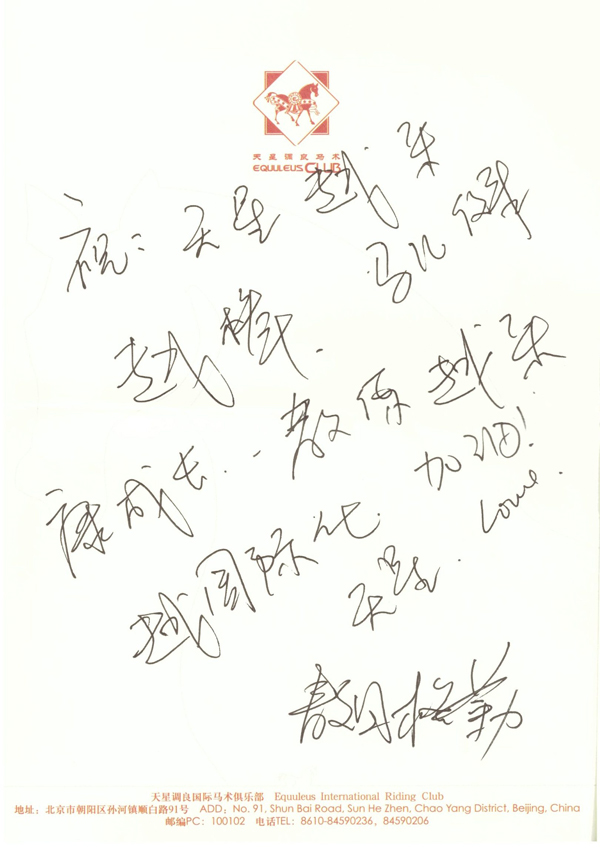 天星调良马术
EQUULEUS CLUB
祝:天星越来
越棒.马儿健
康成长..教练越来
越国际化.加油!
Love.
敖日格勒
天星调良国际马术俱乐部 Equuleus International Riding Club
地址:北京市朝阳区孙河镇顺白路91号 ADD: No. 91, Shun Bai Road, Sun He Zhen, Chao Yang District, Beijing, China
邮编PC: 100102 电话TEL: 8610-84590236、84590206